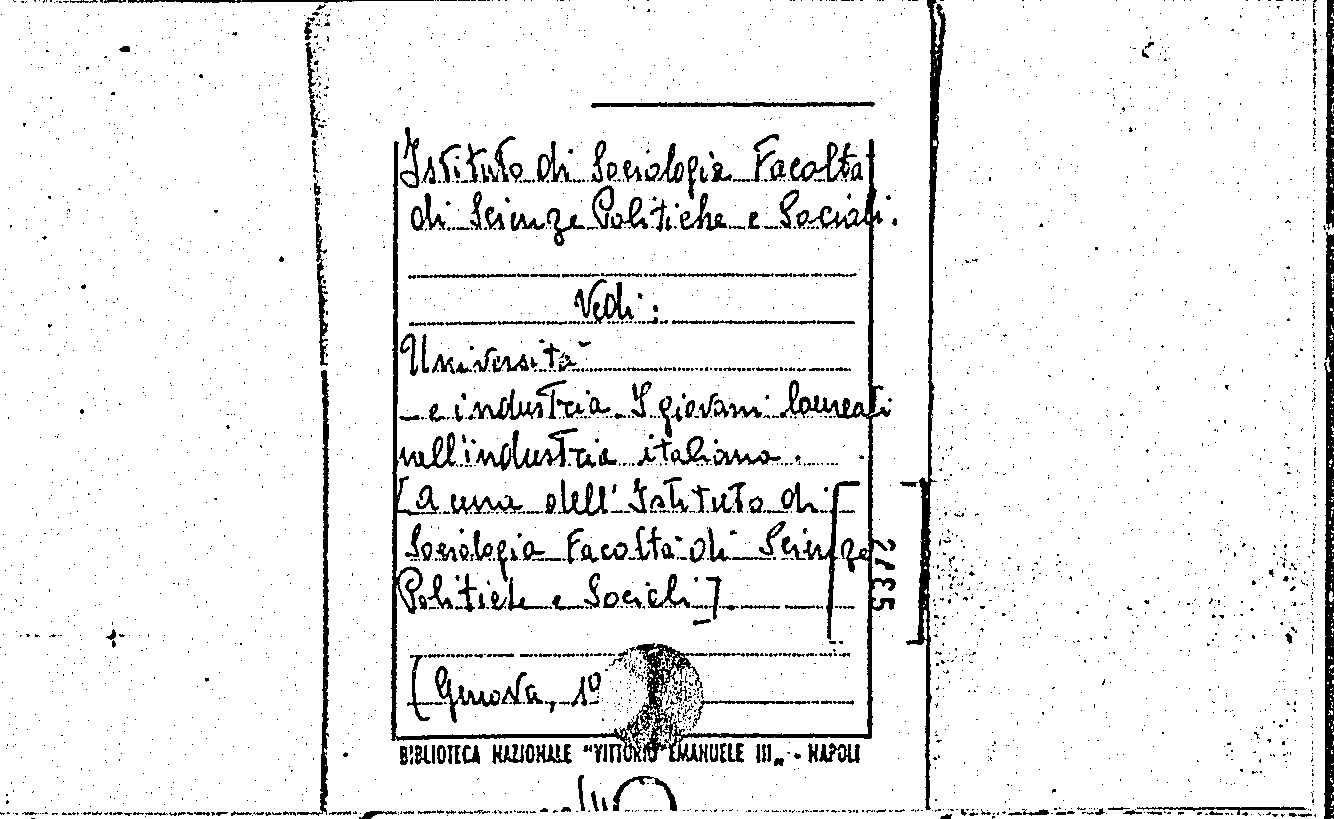 Istituto di Sociologia Facoltà
di Scienze Politiche e Sociali.
Vedi:
Università
– e industria. I giovani laureati
nell'industria italiana.
[A cura dell'Istituto di
Sociologia Facoltà di Scienze
Politiche e Sociali].
(Genova, 19
BIBLIOTECA NAZIONALE "VITTORIO EMANUELE III„ - NAPOLI